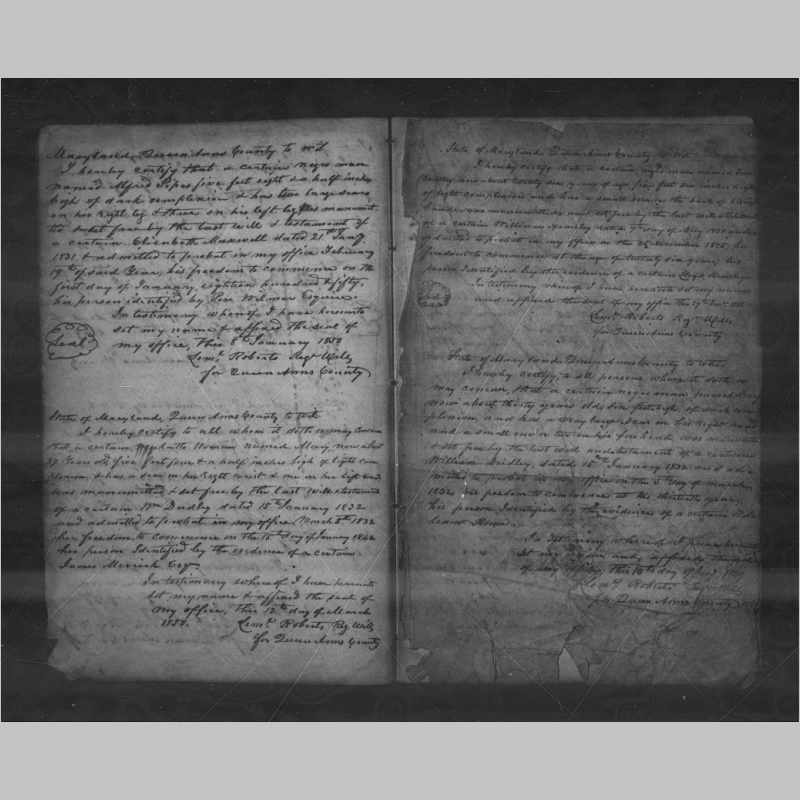 Maryland, Queen Anns County to wit
I hereby certify that a certain negro man
named Alfred five feet eight & a half inches
high of dark complexion & has two large scars
on his right leg & three on his left leg was manumit
ted & set free by the last will & testament of
a certain Elizabeth Maxwell dated 21st Jany
1831 & admitted to probat in my office February
19th of said Year, his freedom to commence on the
first day of January, eighteen hundred & fifty,
his person identified by Esquire.
In testimony whereof I have hereunto
set my name & affixed the seal of
my office, this 8th January 1850
Seal
Leml. Roberts Regr Wills
for Queen Anns County
State of Maryland, Queen Anns County to wit
I hereby certify to all whom it doth or may concern
that a certain Woman named Mary now about
37 Years old five feet four & a half inches high of light com
plexion & has a scar on her right wrist & one on her left hand
was manumitted & set free by the last Will & testament
of a certain Wm Dudley dated 15th January 1832
and admitted to probat in my office March 5th 1832
her freedom to commence on the 15th day of January
her person Identified by the evidence of a certain
James Merrick Esqr
In testimony whereof I have hereunto
set my name & affixed the seal of
my office, this 12th day of March
1850. Leml. Roberts Reg Wills
for Queen Anns County
State of Maryland Queen Anns County to wit
I hereby certify that a certain negro man named
years of age five feet six inches high
of light complexion and has a small scar on the back of
was manumitted and set free by the last will & testament
of a certain William dated 7th day of May
admitted to probat in my office on the 28th November 1826, his
freedom to commence at the age of twenty six years, his
person Identified by the evidence of a certain
In testimony whereof I have hereunto set my name
and affixed the seal of my office this 19th
Seal
Leml Roberts Regr Wills
for Queen Anns County
State of Maryland Queen Anns County to wit
I hereby certify, to all persons whom it doth or
may concern, that a certain negro man named
now about thirty years old six feet high of dark com
plexion and has a very large scar on his right
and a small one on his forehead was manumitted
& set free by the last will and testament of a certain
William Dudley, dated 15th January 1832 and ad
mitted to probat in my office on the 5th day of March
1832, his freedom to commence at the thirtieth year,
his person Identified by the evidence of a certain
In testimony whereof I have hereunto
set my name and affixed the seal
of my office, this 16th day of
Leml Roberts
for Queen Anns County